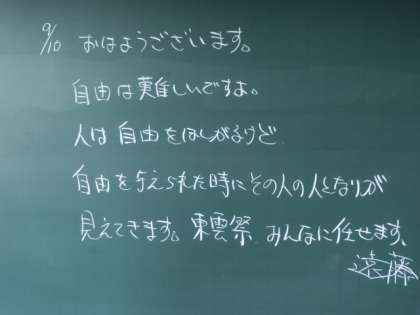 9/10 おはようございます。
自由は難しいですよ。
人は自由をほしがるけど
自由を与えられた時にその人の人となりが
見えてきます。東雲祭 みんなに任せます。
遠藤